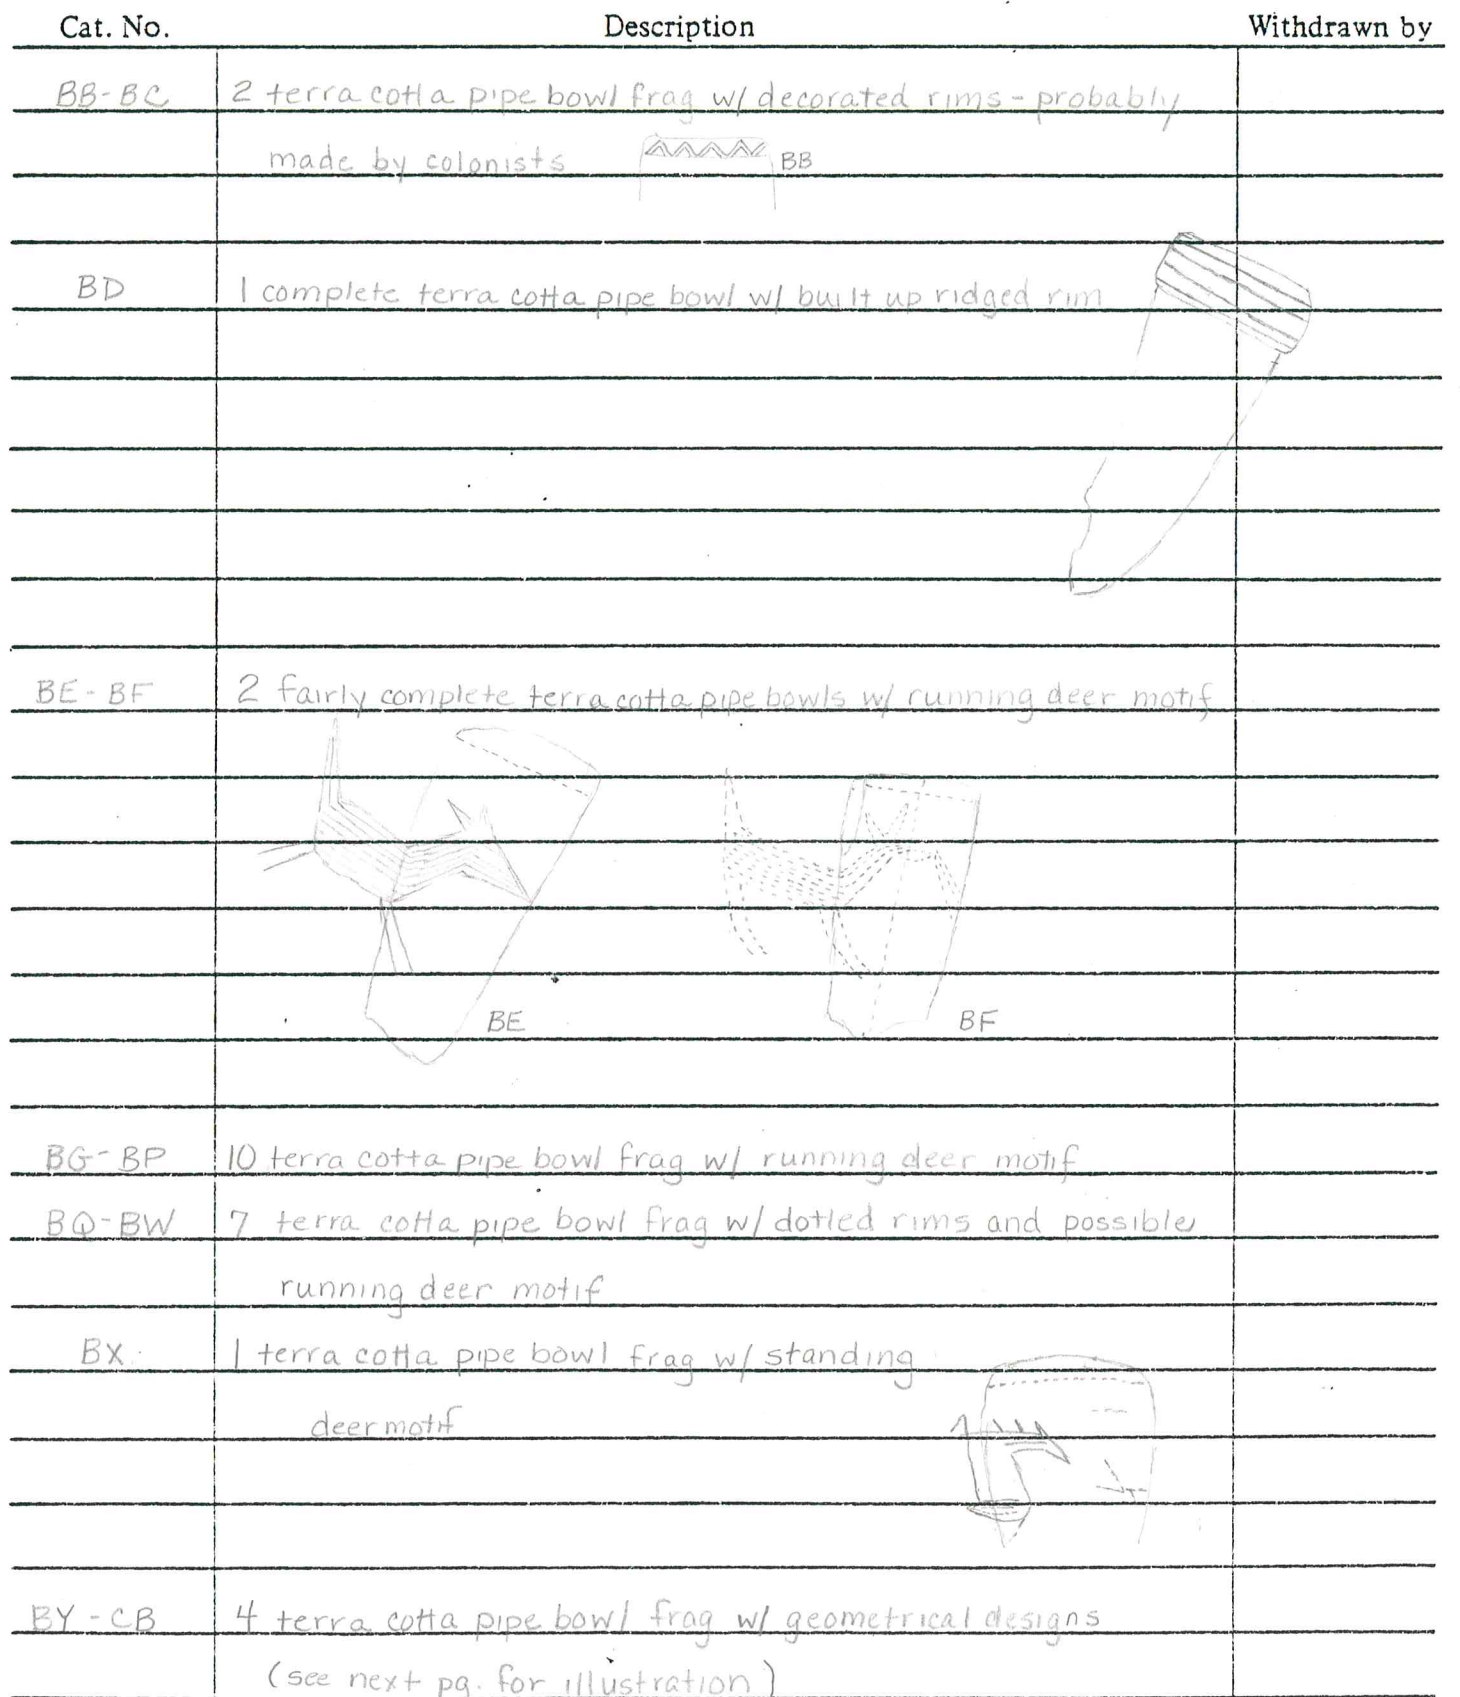 Cat. No. Description Withdrawn by
BB-BC 2 terra cotta pipe bowl frag w/ decorated rims - probably
made by colonists BB
BD 1 complete terra cotta pipe bowl w/ built up ridged rim
BE-BF 2 fairly complete terra cotta pipe bowls w/ running deer motif
BE BF
BG-BP 10 terra cotta pipe bowl frag w/ running deer motif
BQ-BW 7 terra cotta pipe bowl frag w/ dotted rims and possible
running deer motif
BX 1 terra cotta pipe bowl frag w/ standing
deer motif
BY-CB 4 terra cotta pipe bowl frag w/ geometrical designs
(see next pg. for illustration)